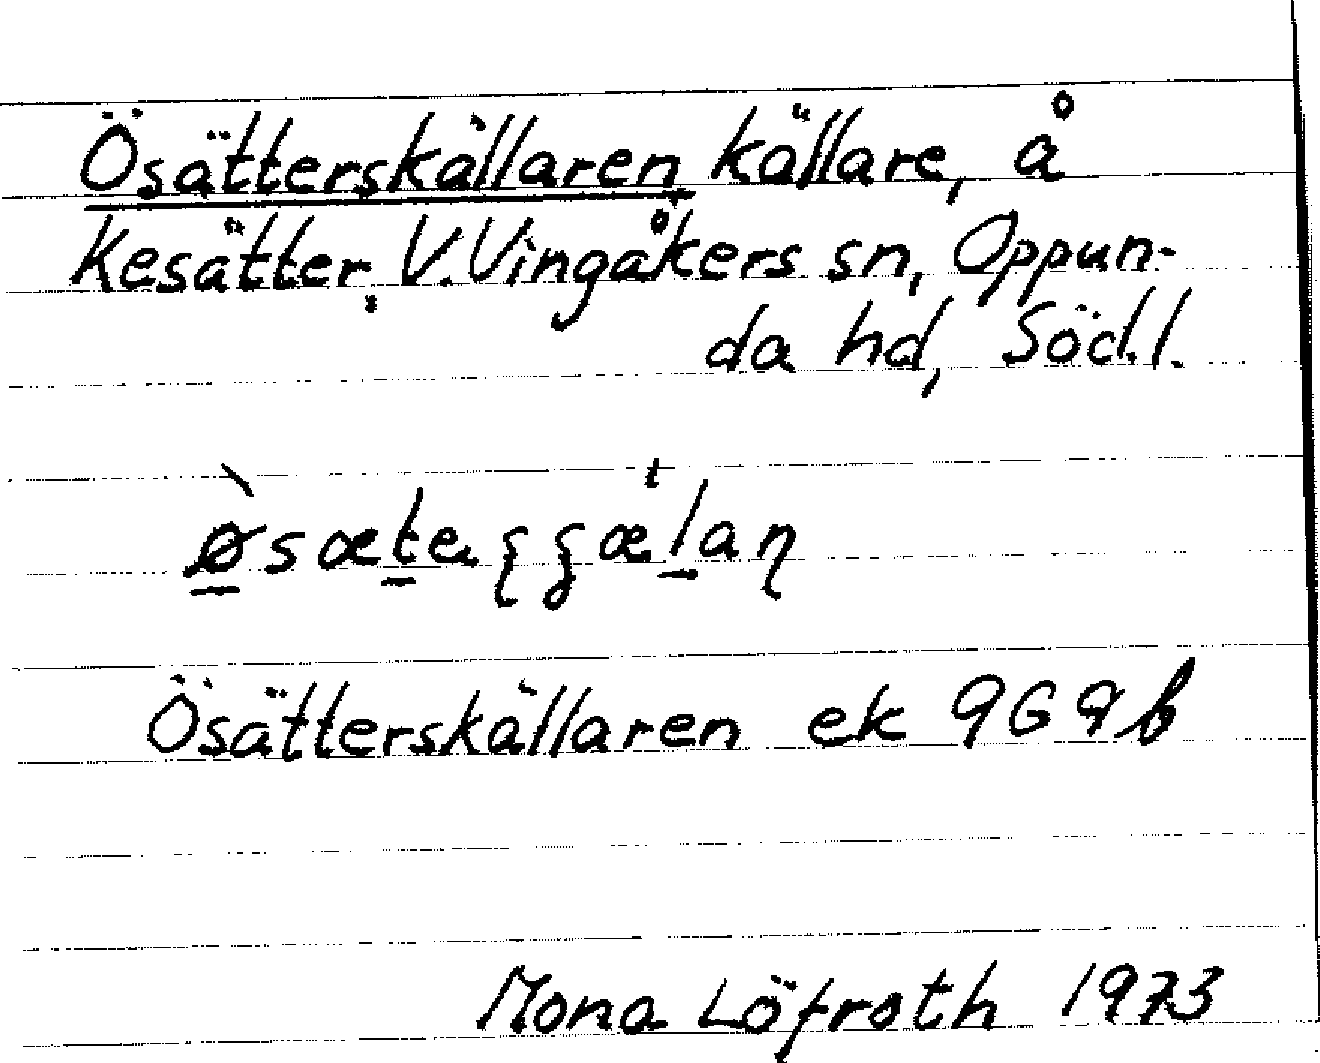 Ösätterskällaren källare, å
Kesätter, V. Vingåkers sn, Oppun-
da hd, Södl.
Ösätterskällaren ek 9G9b
Mona Löfroth 1973